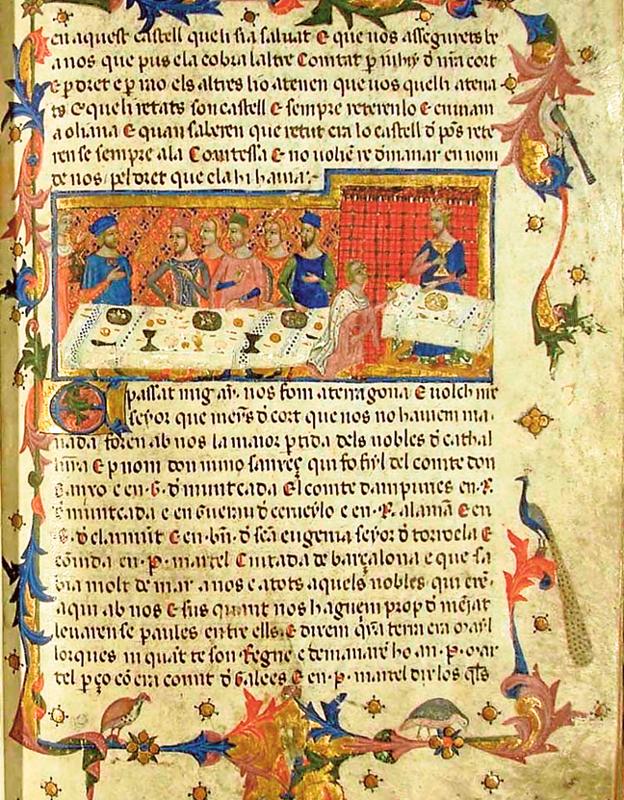 en aquest castell que li sia saluat E que uos assegurets be
a nos que pus ela cobra laltre Comtat
E p dret e p els altres ho atenen que uos quelli atena
ts E que li retats son castell E sempre reterenlo E
a oliana E quan saberen que retut era lo castell d pōs rete
ren se sempre ala Comtessa E no uolie re dmanar en nom
de nos pel dret que ela hi hauia
E passat mig ay nos fom a terragona E uolch nre
seyor que meys d cort que nos no hauiem ma
nada foren ab nos la maior ptida dels nobles d cathal
E p nom don nuno sanxeç qui fo fiyl del comte don
sanxo e en G d muntcada El comte dampuries en R
d muntcada e en Guerau d cerueylo e en R alamā E en
G d claramut E en bn d sēa eugenia seyor d torroela E
en P martel Ciutada de barçalona e que sa
bia molt de mar a nos e a tots aquels nobles qui ere
aqui ab nos E sus quant nos haguem prop d mejat
leuaren se paules entre ells E dixem qna terra era mayl
lorques ni quat te son Regne e demanare ho a P mar
tel pço co era comit d Galees E en P martel dix los qls